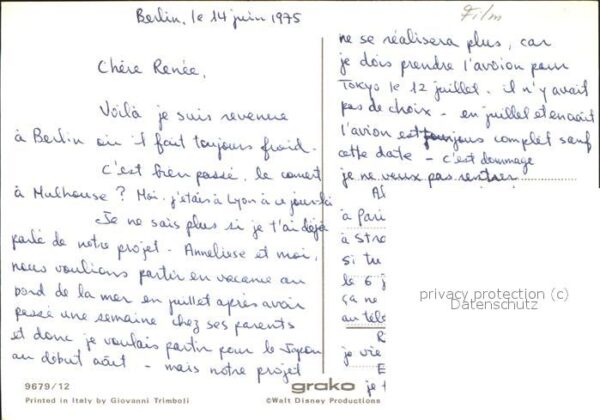 Berlin, le 14 juin 1975
Film
Chère Renée,
Voilà je suis revenue
à Berlin où il fait toujours froid.
C'est bien passé, le concert
à Mulhouse ? Moi, j'étais à Lyon à ce jour-là
Je ne sais plus si je t'ai déjà
parlé de notre projet - Anneliese et moi,
nous voulions partir en vacance au
bord de la mer en juillet après avoir
passé une semaine chez ses parents
et donc je voulais partir pour le Japon
au début août - mais notre projet
ne se réalisera plus, car
je dois prendre l'avion pour
Tokyo le 12 juillet. il n'y avait
pas de choix - en juillet et en août
l'avion est toujours complet sauf
cette date - c'est dommage
je ne veux pas rentrer
à Pari
à Stra
si tu
le 6 j
ça ne
au télé
je vie
je t
privacy protection (c)
Datenschutz
9679/12
Printed in Italy by Giovanni Trimboli
grako
©Walt Disney Productions